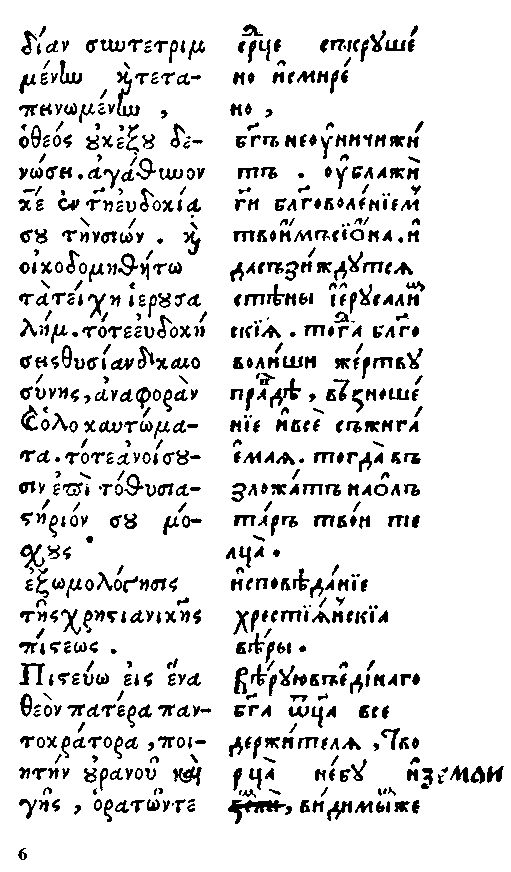 δίαν συντετριμ
μένην κ̀ τετα-
πηνωμένην ,
ὁθεός ȣκέξȣ δε-
νώση. ἀγάθυνον
κ̅ε ἐν τῆευδοκία
σȣ τὴνσιών . κ̀
οἰκοδομηθήτω
τὰτείχη ἱερȣσα
λήμ. τότεευδοκή
σηςθυσίανδικαιο
σύνης, ἀναφορὰν
ϛὁλοκαυτώμα-
τα. τότεἀνοίσȣ-
σιν ἐπὶ τόθυσια-
ϛήριόν σȣ μό-
σχȣς
ἐξωμολόγησις
τῆςχρηϛιανικῆς
πίϛεως .
Πιϛεύω εἰς ἕνα
θεὸν πατέρα παν-
τοκράτορα , ποι-
ητήν ȣρανοῦ καὶ
γῆς , ὁρατῶντε
6
ср҃це съкруше́
но и҆смире́
но ,
бг҃ъ неѹ҆ничижи́
тъ . ѹ҆блажѝ
гѝ бл҃говоле́нїемⷨ
твои́мъсїѡ́на . и҆
дасъзи́ждутсѧ
стѣны і҆ерꙋсали́мⷨ
скїѧ . тогⷣа бл҃го
воли́ши же́ртвꙋ
пра́вⷣѣ , възноше́
нїе и҆всѐ съжига́
е҆маѧ . тогда̀ въ
зложа́тъ наѻ҆лъ
та́ръ тво́и те
лца̀ .
и҆сповѣ́данїе
хрестїѧ́нскїа
вѣ́ры .
Вѣ́рꙋювъе҆ди́наго
бг҃а ѿ҃ца̀ все
держи́телѧ , Тво
рца̀ не́бꙋ и҆земли
, ви́димымⷨже